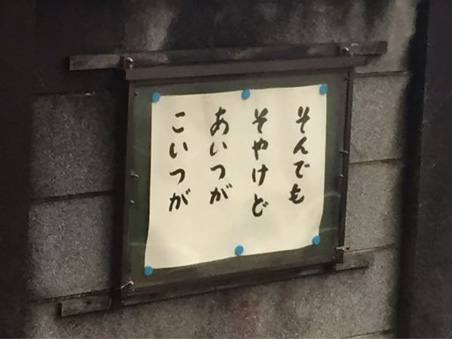 そんでも
そやけど
あいつが
こいつが